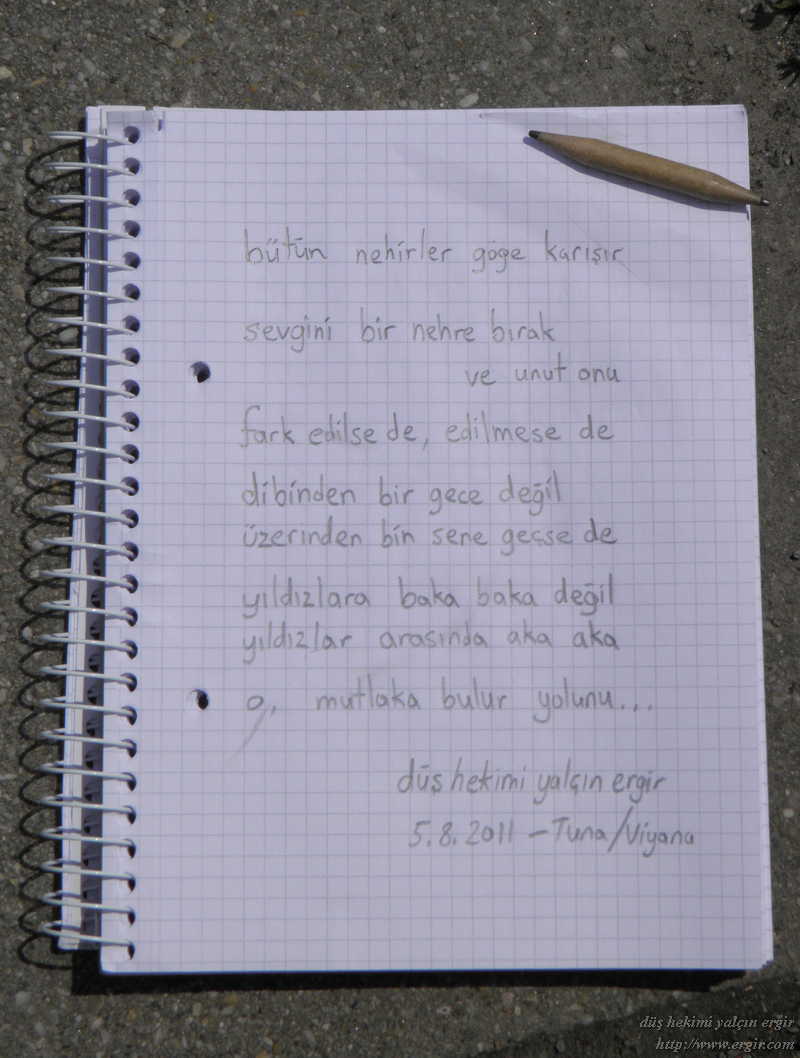 bütün nehirler göğe karışır
sevgini bir nehre bırak
ve unut onu
fark edilse de, edilmese de
dibinden bir gece değil
üzerinden bin sene geçse de
yıldızlara baka baka değil
yıldızlar arasında aka aka
o, mutlaka bulur yolunu...
düş hekimi yalçın ergir
5.8.2011 - Tuna/Viyana
düş hekimi yalçın ergir
http://www.ergir.com